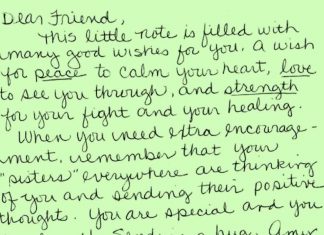 Dear Friend,
This little note is filled with
many good wishes for you. A wish
for peace to calm your heart, love
to see you through, and strength
for your fight and your healing.
When you need extra encourage-
ment, remember that your
"sisters" everywhere are thinking
of you and sending their positive
thoughts. You are special and you